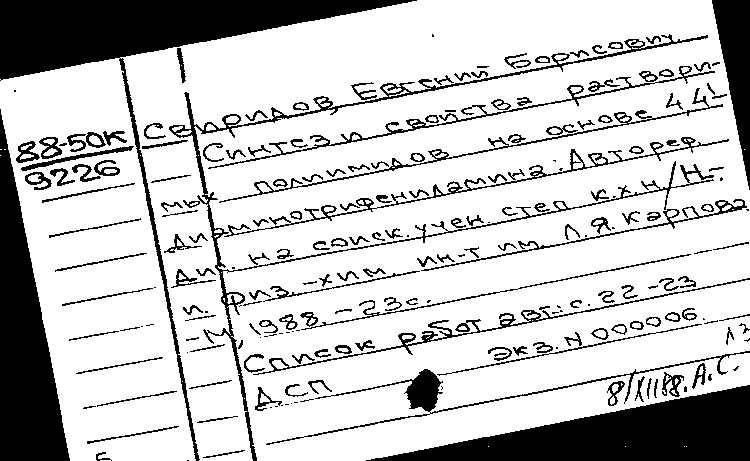 88-50к
9226
Свиридов, Евгений Борисович.
Синтез и свойства раствори-
мых полиимидов на основе 4,4'-
диаминотрифениламина: Автореф.
дис. на соиск. учен. степ к.х.н / Н.-
и. физ.-хим. ин-т им. Л.Я. Карпова
-М, 1988. - 23с.
Список работ авт.: с. 22-23
ДСП Экз. N 000006.
8/XII88. А.С.